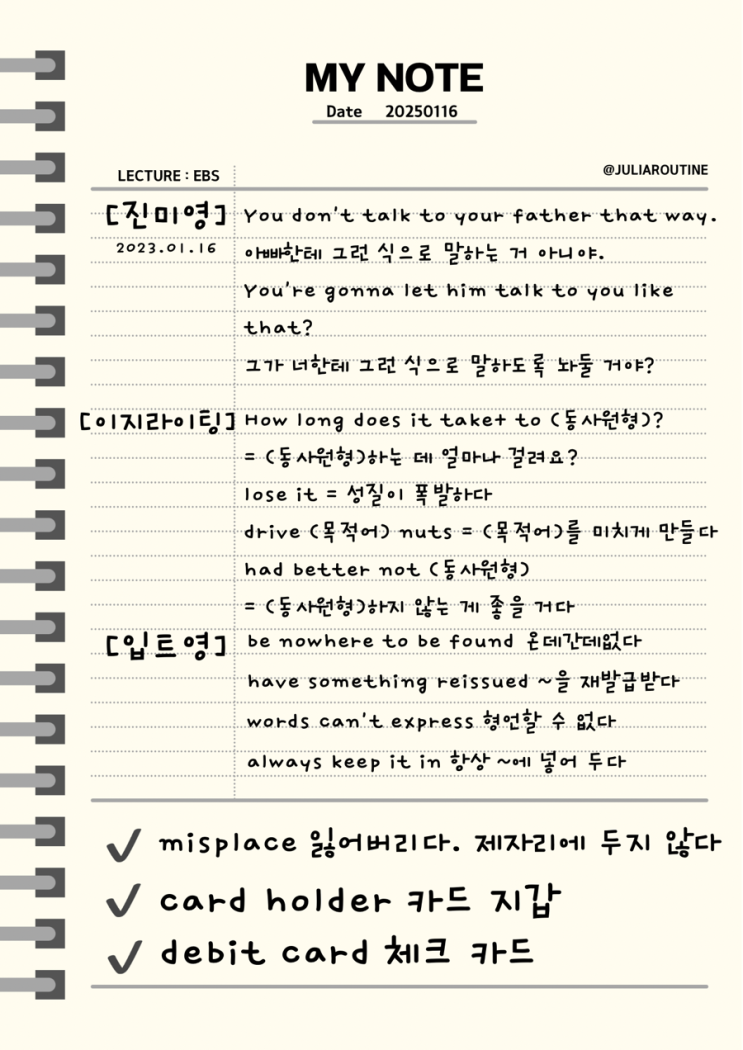 MY NOTE
Date 20250116
LECTURE : EBS
@JULIAROUTINE
[진미영] You don't talk to your father that way.
2023.01.16 아빠한테 그런 식으로 말하는 거 아니야.
You're gonna let him talk to you like
that?
그가 너한테 그런 식으로 말하도록 놔둘 거야?
[이지라이팅] How long does it take+ to (동사원형)?
= (동사원형)하는 데 얼마나 걸려요?
lose it = 성질이 폭발하다
drive (목적어) nuts = (목적어)를 미치게 만들다
had better not (동사원형)
= (동사원형)하지 않는 게 좋을 거다
[입트영] be nowhere to be found 온데간데없다
have something reissued ~을 재발급받다
words can't express 형언할 수 없다
always keep it in 항상 ~에 넣어 두다
misplace 잃어버리다. 제자리에 두지 않다
card holder 카드 지갑
debit card 체크 카드